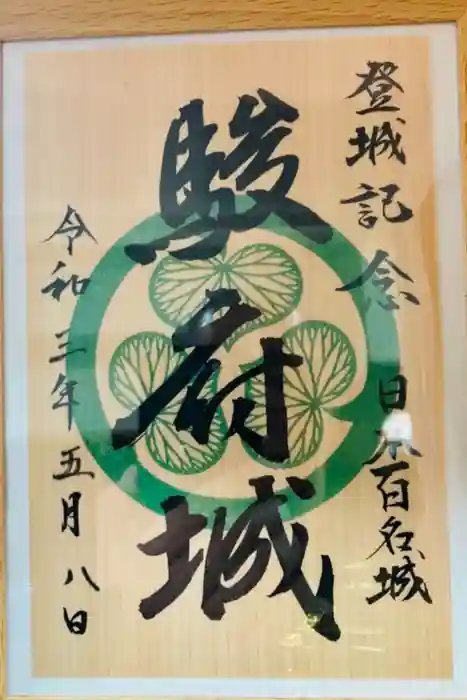 登城記念 日本百名城
駿府城
令和三年五月八日